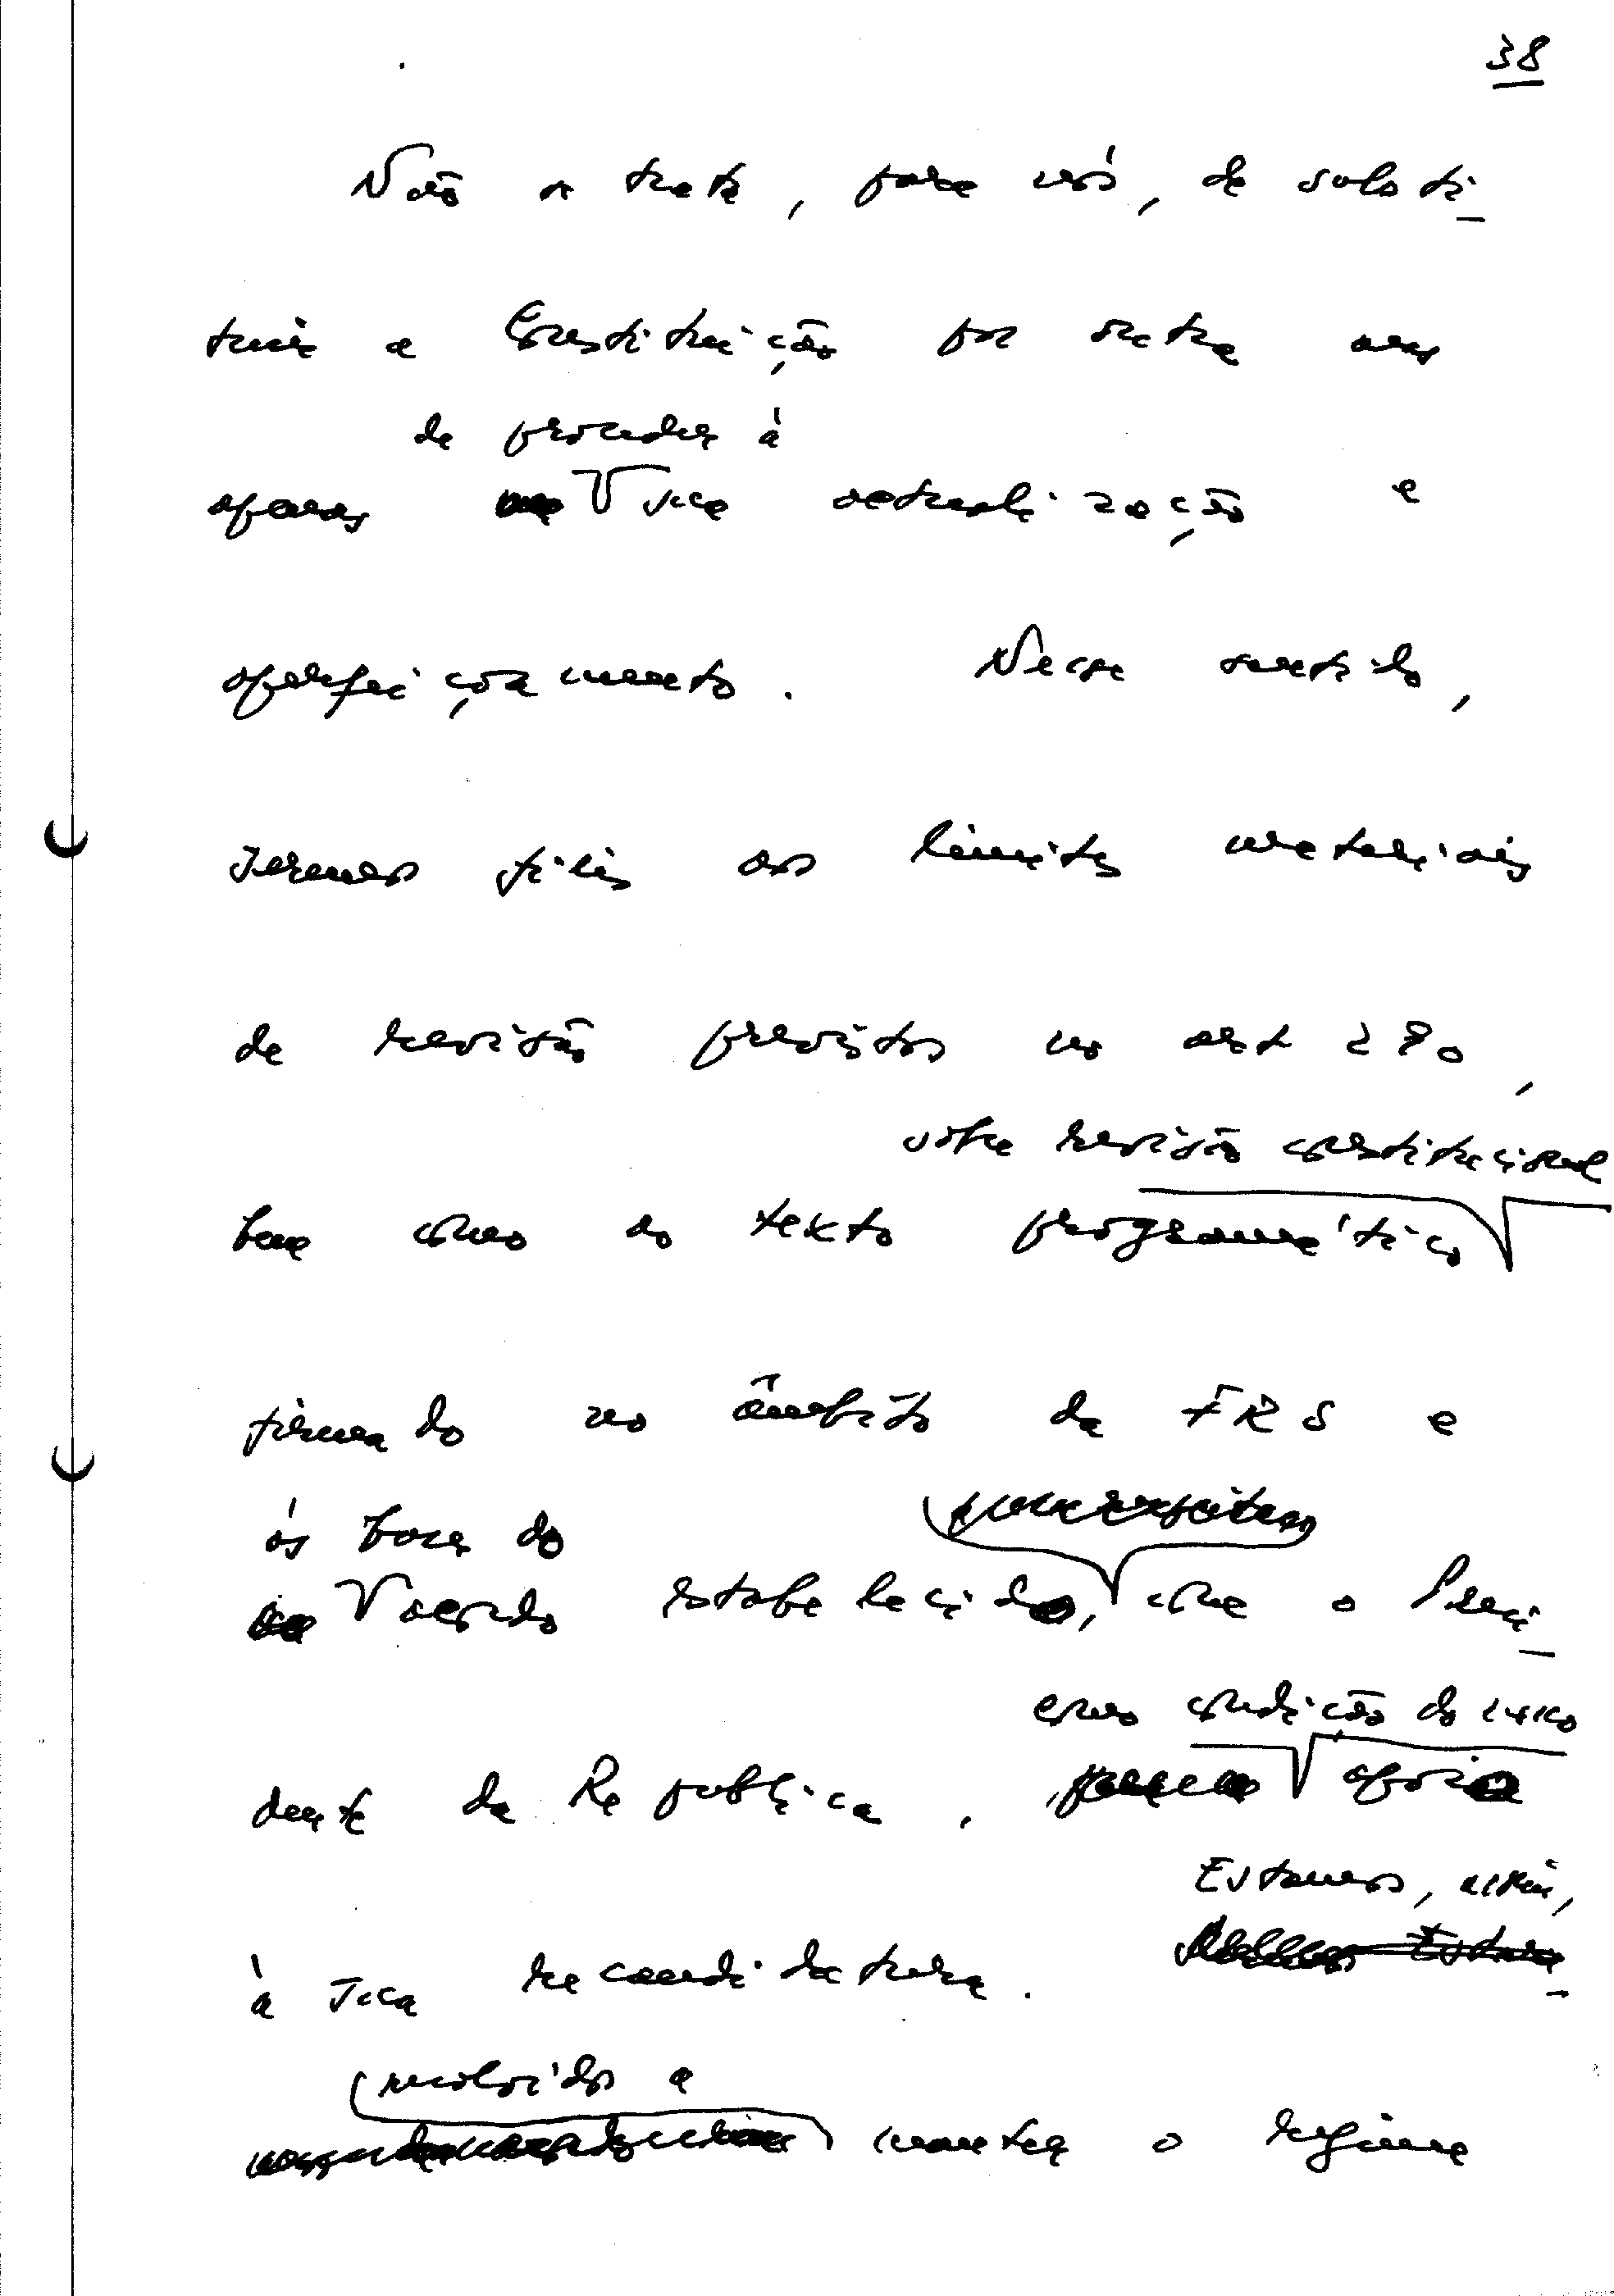 38
Não se trata, para nós, de substi-
tuir a Constituição por outra mas
de proceder à
apenas sua actualização e
aperfeiçoamento. Nesse sentido,
seremos fiéis aos limites materiais
de revisão previstos no art 290,
sobre revisão constitucional
bem como ao texto programático
firmado no âmbito da FRS e
às bases do
acordo estabelecido, com o Presi-
como condição do seu
dente da República, apoio
à sua recandidatura.
Estamos, assim,
resolvidos a
manter o regime